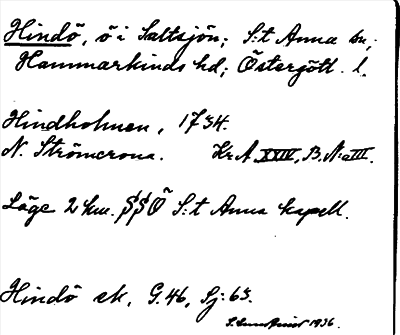 Hindö, ö i Saltsjön; S:t Anna sn;
Hammarkinds hd; Östergötl. l.
Hindholmen, 1734.
N. Strömcrona. Kr.A. XXIV, B, N:o III.
Läge 2 km. SSÖ S:t Anna kapell.
Hindö ek, G.46, Sj:63.
1936.